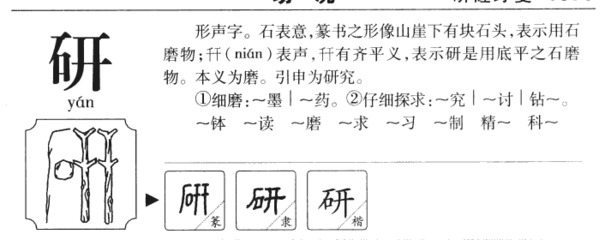 研
yán
形声字。石表意,篆书之形像山崖下有块石头,表示用石
磨物;幵(nián)表声,幵有齐平义,表示研是用底平之石磨
物。本义为磨。引申为研究。
①细磨:～墨｜～药。②仔细探求:～究｜～讨｜钻～。
～钵 ～读 ～磨 ～求 ～习 ～制 精～ 科～
研 篆 研 隶 研 楷